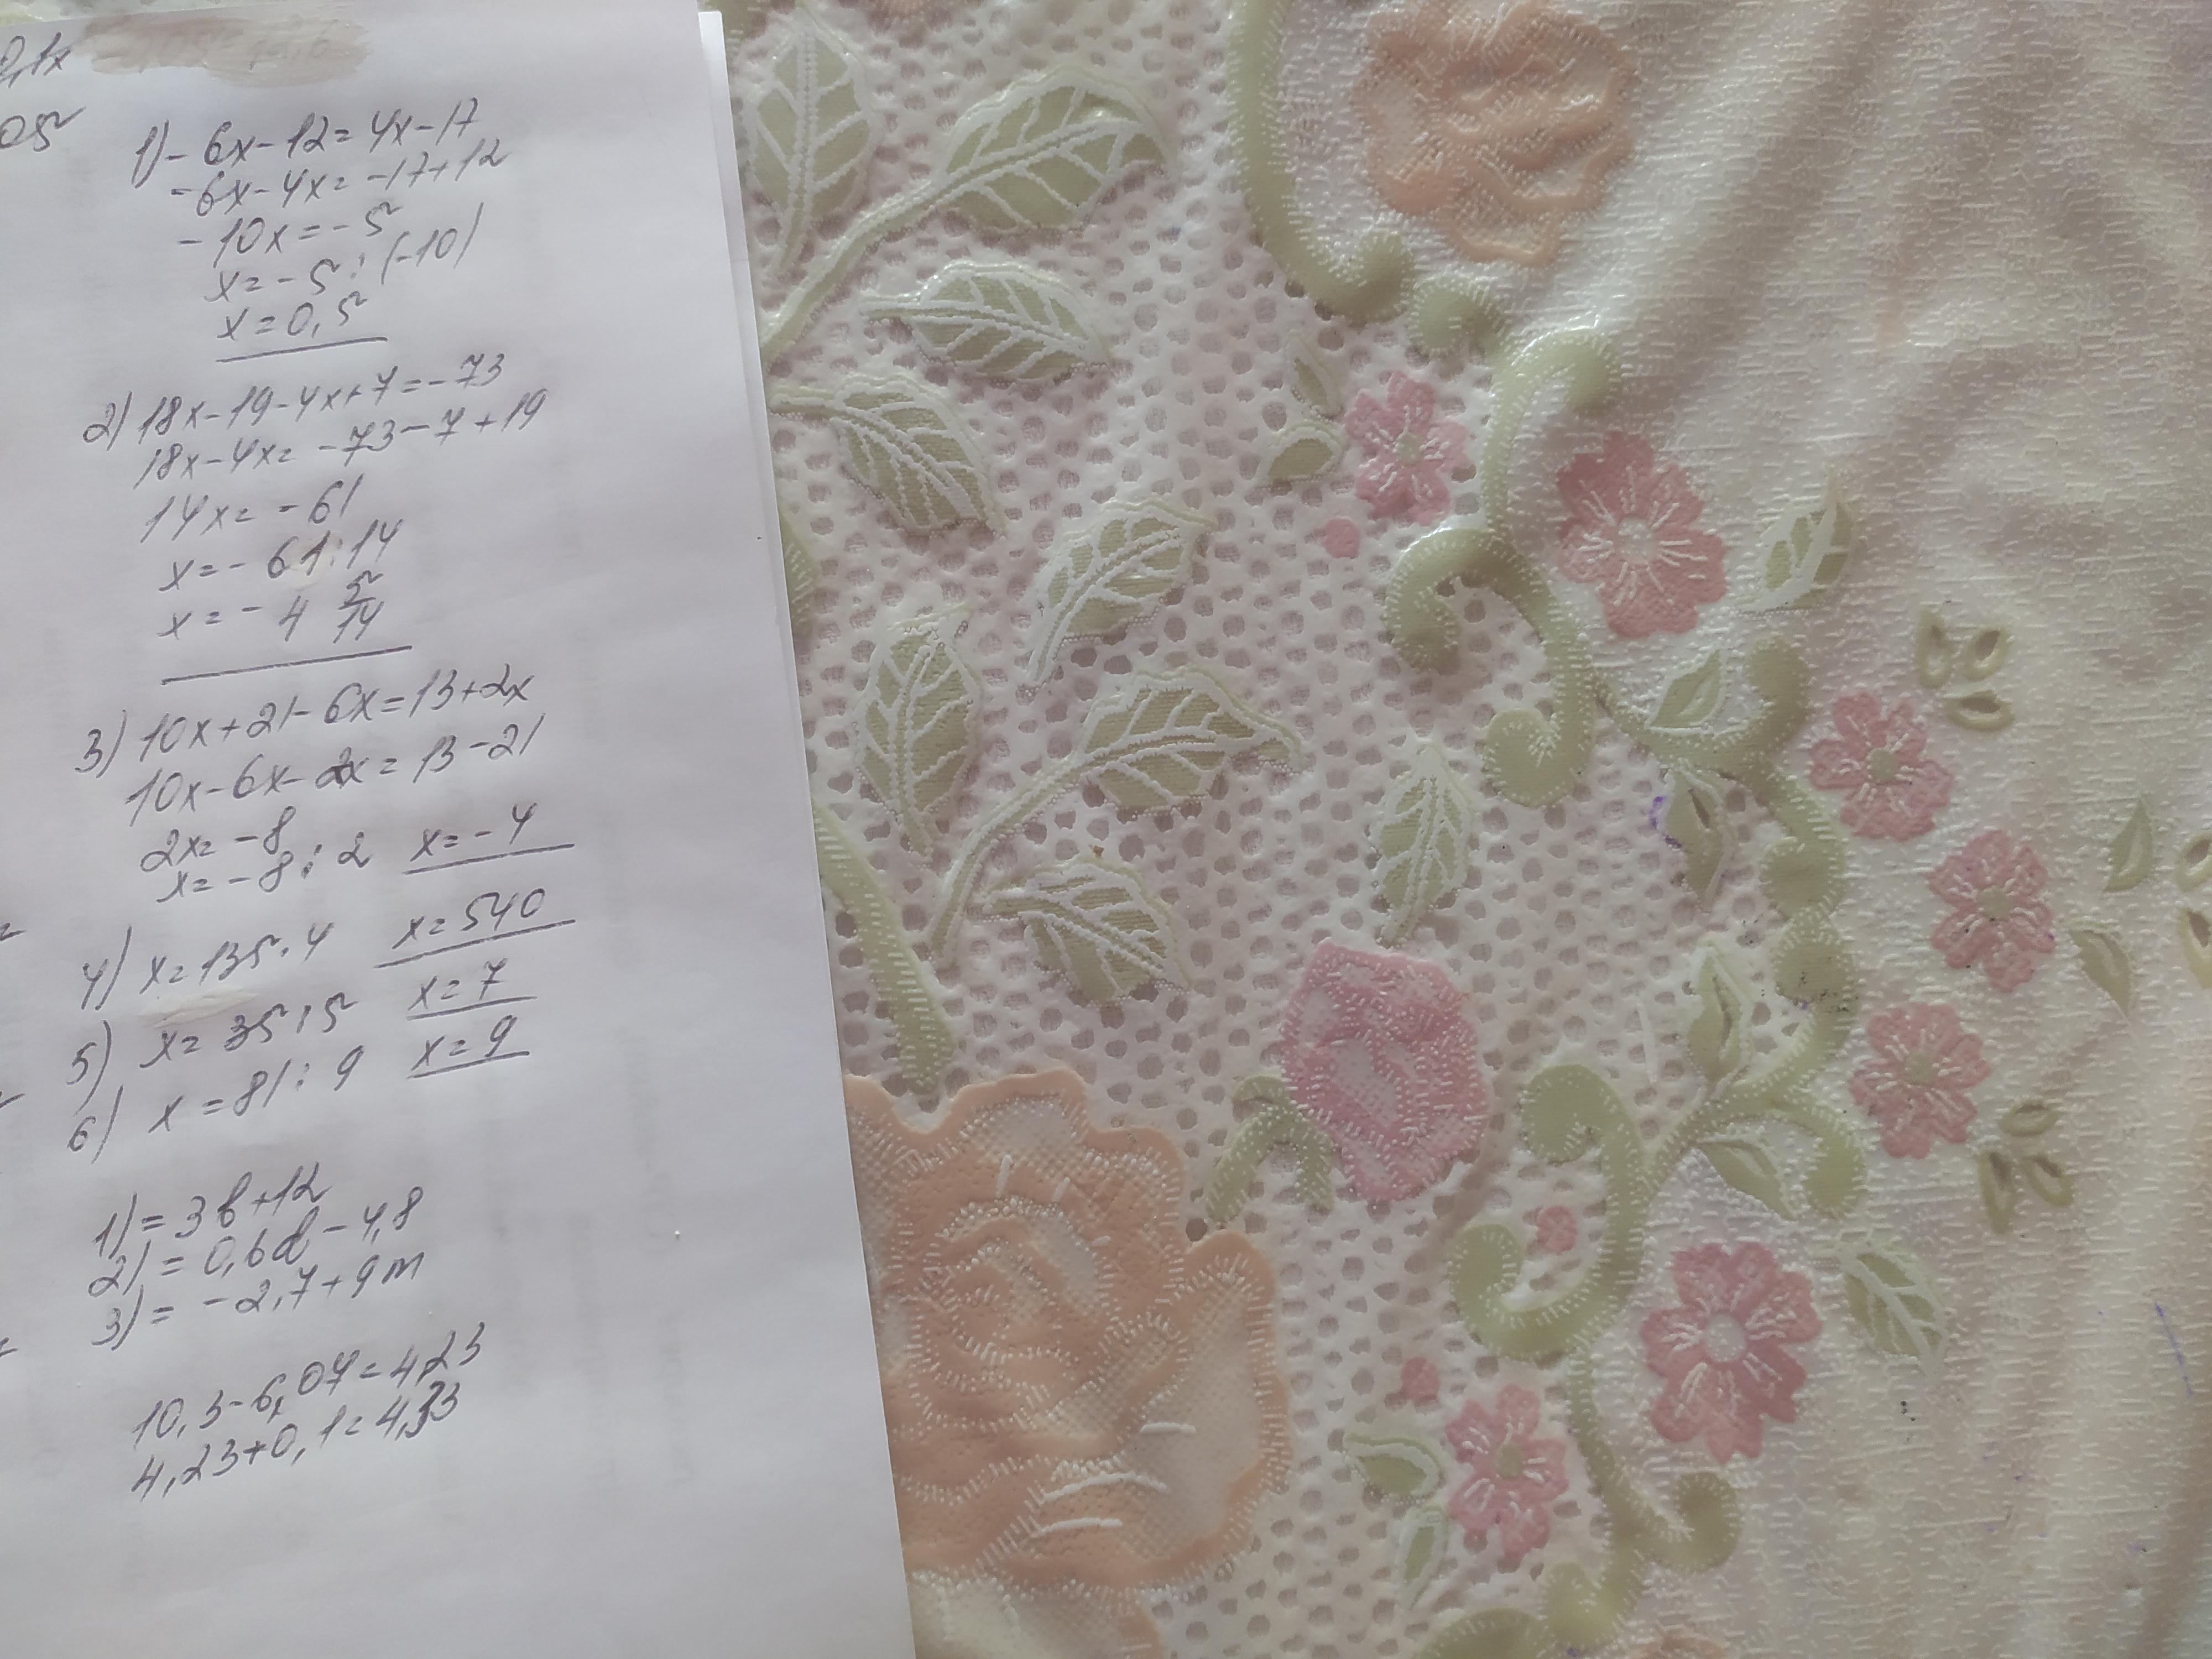 2,1x
05
1) - 6x - 12 = 4x - 17
- 6x - 4x = - 17 + 12
- 10x = - 5
x = - 5 : (-10)
x = 0,5
2) 18x - 19 - 4x + 7 = - 73
18x - 4x = - 73 - 7 + 19
14x = - 61
x = - 61 : 14
x = - 4 5/14
3) 10x + 21 - 6x = 13 + 2x
10x - 6x - 2x = 13 - 21
2x = - 8
x = - 8 : 2 x = - 4
4) x = 135 · 4 x = 540
5) x = 35 : 5 x = 7
6) x = 81 : 9 x = 9
1) = 3b + 12
2) = 0,6d - 4,8
3) = - 2,7 + 9m
10,3 - 6,07 = 4,23
4,23 + 0,1 = 4,33